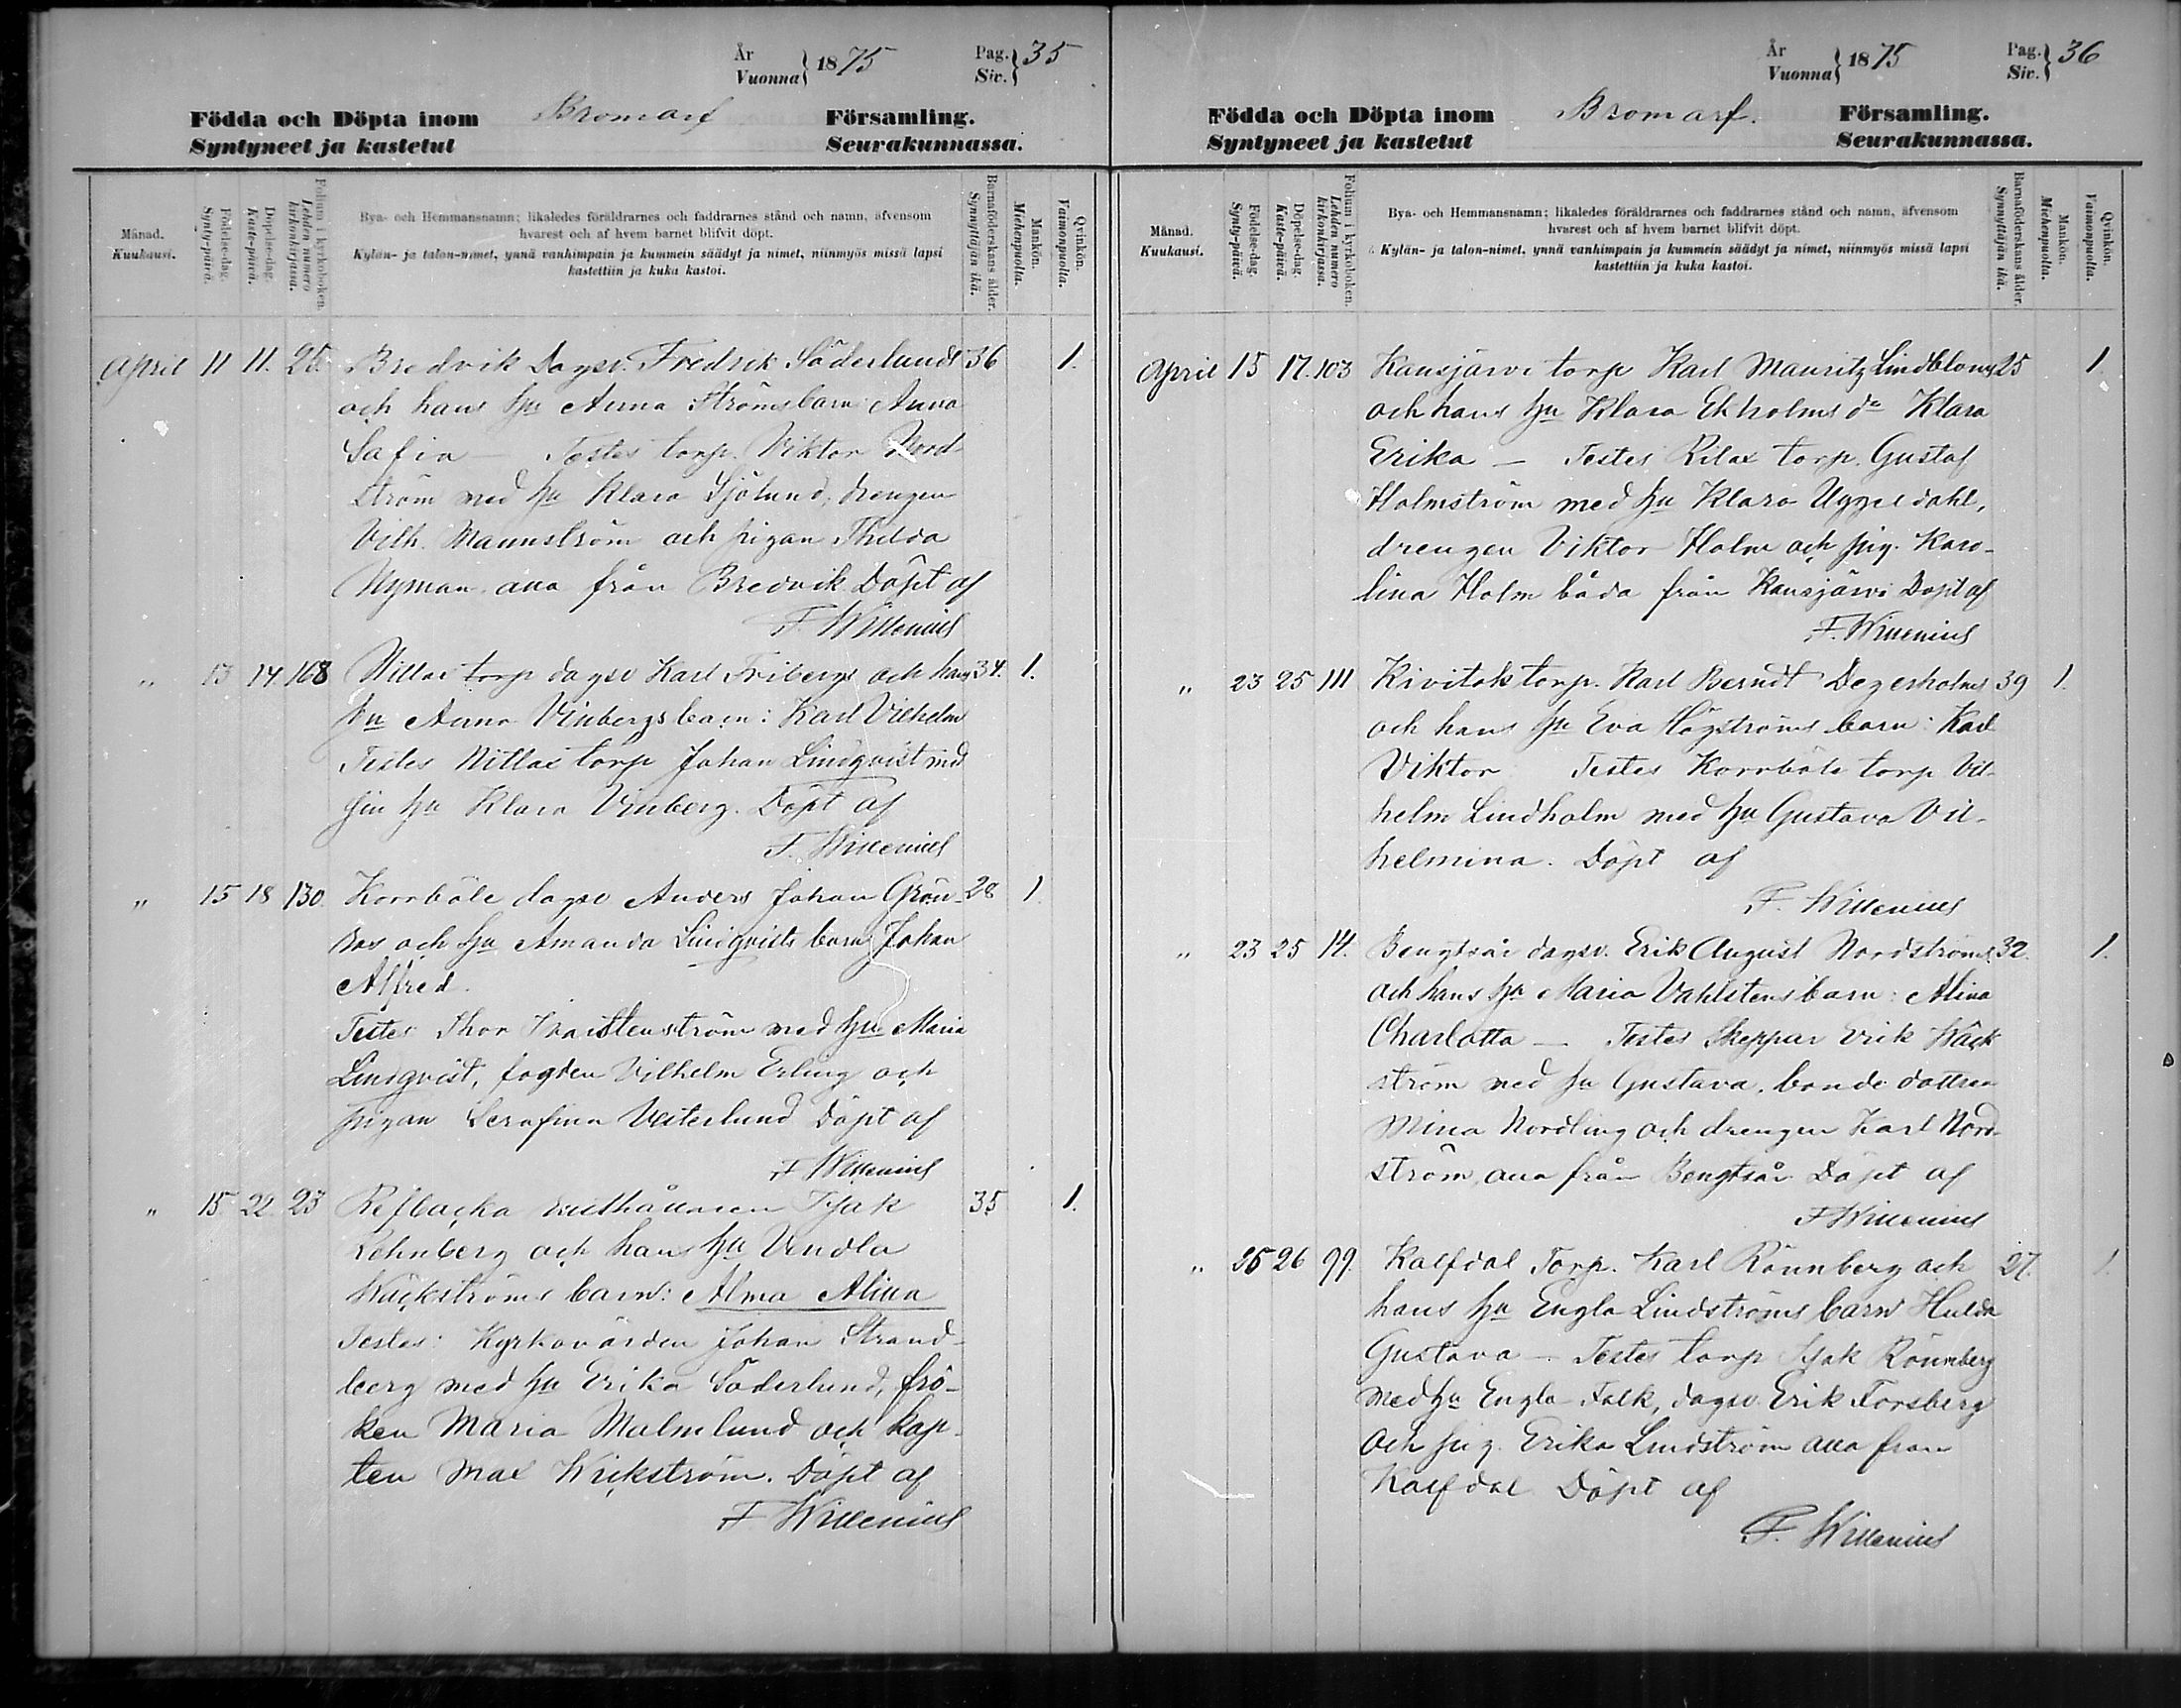 År
Vuonna } 1875
Pag.
Siv. } 35
Födda och Döpta inom Bromarf Församling.
Syntyneet ja kastetut Seurakunnassa.
Månad.
Kuukausi.
Födelse-dag.
Synty-päivä.
Döpelse-dag.
Kaste-päivä.
Folium i kyrkoboken.
Lehden numero
kirkonkirjassa.
Bya- och Hemmansnamn; likaledes föräldrarnes och faddrarnes stånd och namn, äfvensom
hvarest och af hvem barnet blifvit döpt.
Kylän- ja talon-nimet, ynnä vanhimpain ja kummein säädyt ja nimet, niinmyös missä lapsi
kastettiin ja kuka kastoi.
Barnaföderskans ålder.
Synnyttäjän ikä.
Mankön.
Miehenpuolta.
Qvinkön.
Vaimonpuolta.
April 11 11. 25. Bredvik Dagsv. Fredrik Söderlunds 36 1.
och hans hu Anna Ströms barn Anna
Safia — Testes torp. Viktor Nord-
ström med hu Klara Sjölund, drengen
Vilh. Mannström och pigan Thilda
Nyman, alla från Bredvik. Döpt af
F. Willenius
" 13 14. 168 Nitlax torp dagsv Karl Fribergs och hans 34. 1.
hu Anna Vinbergs barn: Karl Vilhelm
Testes Nitlax torp Johan Lindqvist med
sin hu Klara Vinberg. Döpt af
F. Willenius
" 15 18 130. Korrböle dagsv Anders Johan Grön- 28 1.
och hu Amanda Lindqvists barn Johan
Alfred.
Testes Thor med hu Maria
Lindqvist, fogden Vilhelm Erling och
pigan Serafina Vesterlund Döpt af
F Willenius
" 15 22. 23 Refbacka Isak 35 1.
Lehnberg och hans hu Vendla
Wäckströms barn: Alma Alina
Testes: Kyrkovärden Johan Strand-
berg med hu Erika Söderlund, frö-
ken Maria Malmlund och kap-
ten Max Wickström. Döpt af
F. Willenius
År
Vuonna } 1875
Pag.
Siv. } 36
Födda och Döpta inom Bromarf. Församling.
Syntyneet ja kastetut Seurakunnassa.
Månad.
Kuukausi.
Födelse-dag.
Synty-päivä.
Döpelse-dag.
Kaste-päivä.
Folium i kyrkoboken.
Lehden numero
kirkonkirjassa.
Bya- och Hemmansnamn; likaledes föräldrarnes och faddrarnes stånd och namn, äfvensom
hvarest och af hvem barnet blifvit döpt.
Kylän- ja talon-nimet, ynnä vanhimpain ja kummein säädyt ja nimet, niinmyös missä lapsi
kastettiin ja kuka kastoi.
Barnaföderskans ålder.
Synnyttäjän ikä.
Mankön.
Miehenpuolta.
Qvinkön.
Vaimonpuolta.
April 15 17. 103 Kansjärvi torp Karl Mauritz Lindbloms 25 1.
och hans hu Klara Ekholms dr Klara
Erika — Testes Rilax torp. Gustaf
Holmström med hu Klara Uggeldahl,
drengen Viktor Holm och pig. Karo-
lina Holm båda från Kansjärvi Döpt af
F. Willenius
" 23 25 111 Kivitok torp. Karl Berndt Degerholms 39 1.
och hans hu Eva Högströms barn: Karl
Viktor Testes Korrböle torp Vil-
helm Lindholm med hu Gustava Vil-
helmina. Döpt af
F. Willenius
" 23 25 14. Bengtsår dagsv. Erik August Nordströms 32. 1.
och hans hu Maria Vahlstens barn: Alina
Charlotta — Testes Skeppar Erik Wäck
ström med hu Gustava, bonde dottren
Mina Nordling och drengen Karl Nord-
ström, alla från Bengtsår Döpt af
F Willenius
" 25 26 99. Kalfdal Torp. Karl Rönnberg och 27. 1.
hans hu Engla Lindströms barn Hulda
Gustava — Testes torp Isak Rönnberg
med hu Engla Falk, dagsv. Erik Forsberg
och pig. Erika Lindström alla från
Kalfdal Döpt af
F. Willenius